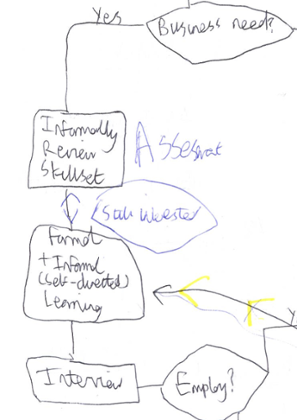 Yes
Business need?
Informally
Review
Skillset
Formal
+ Informal
(self-directed)
Learning
Interview
Employ?